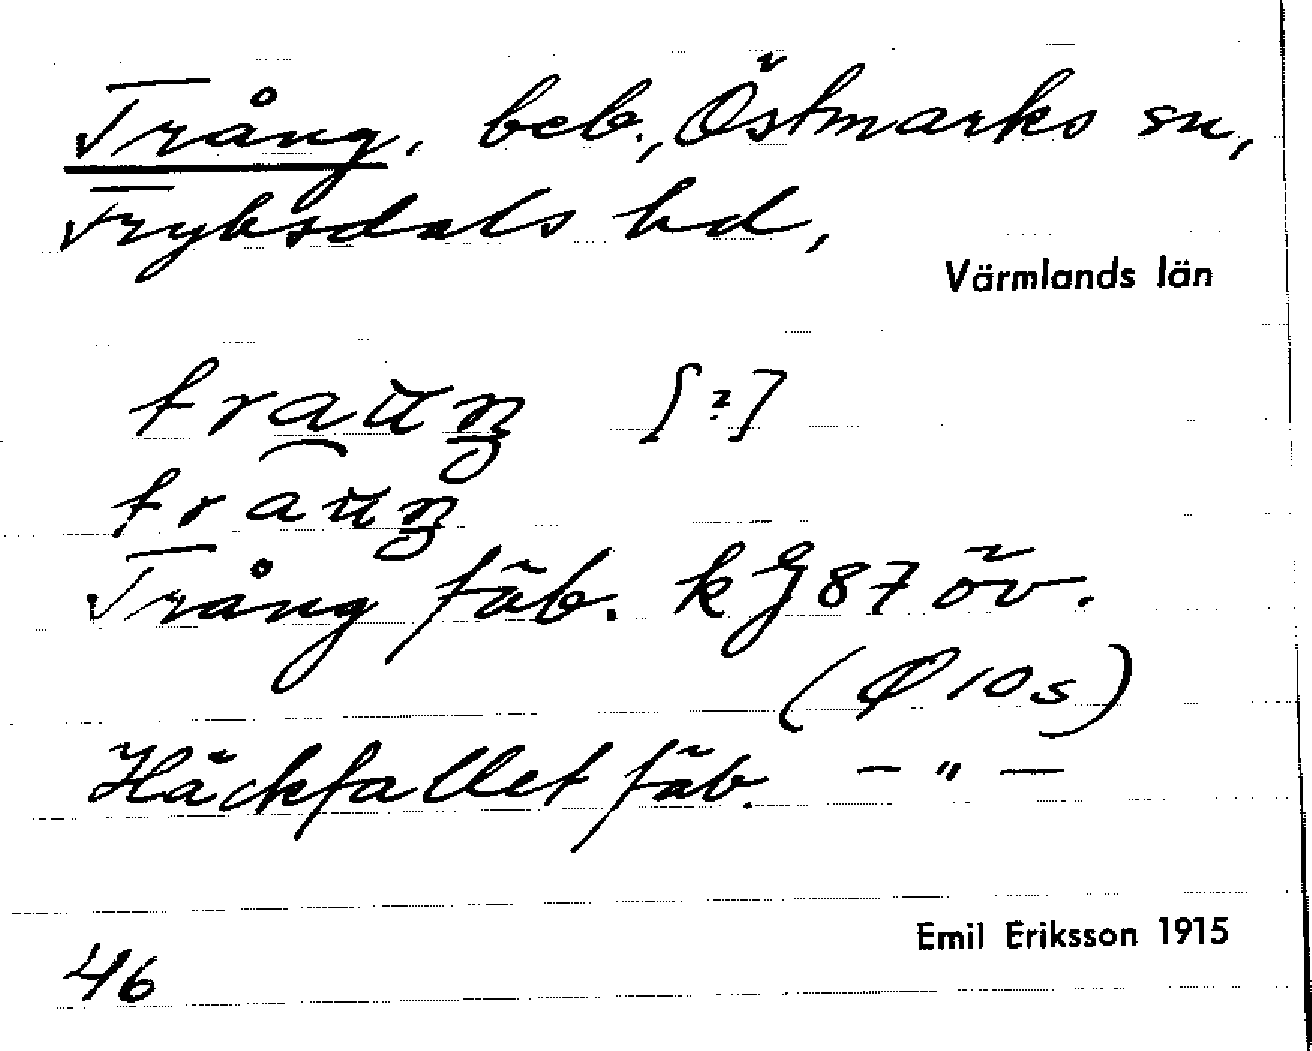 Trång, beb., Östmarks sn,
Fryksdals hd,
Värmlands län
traŭŋ [?]
traŭŋ
Trång fäb. kJ87 öv.
(Ø 10s)
Häckfallet fäb. — " —
Emil Eriksson 1915
46